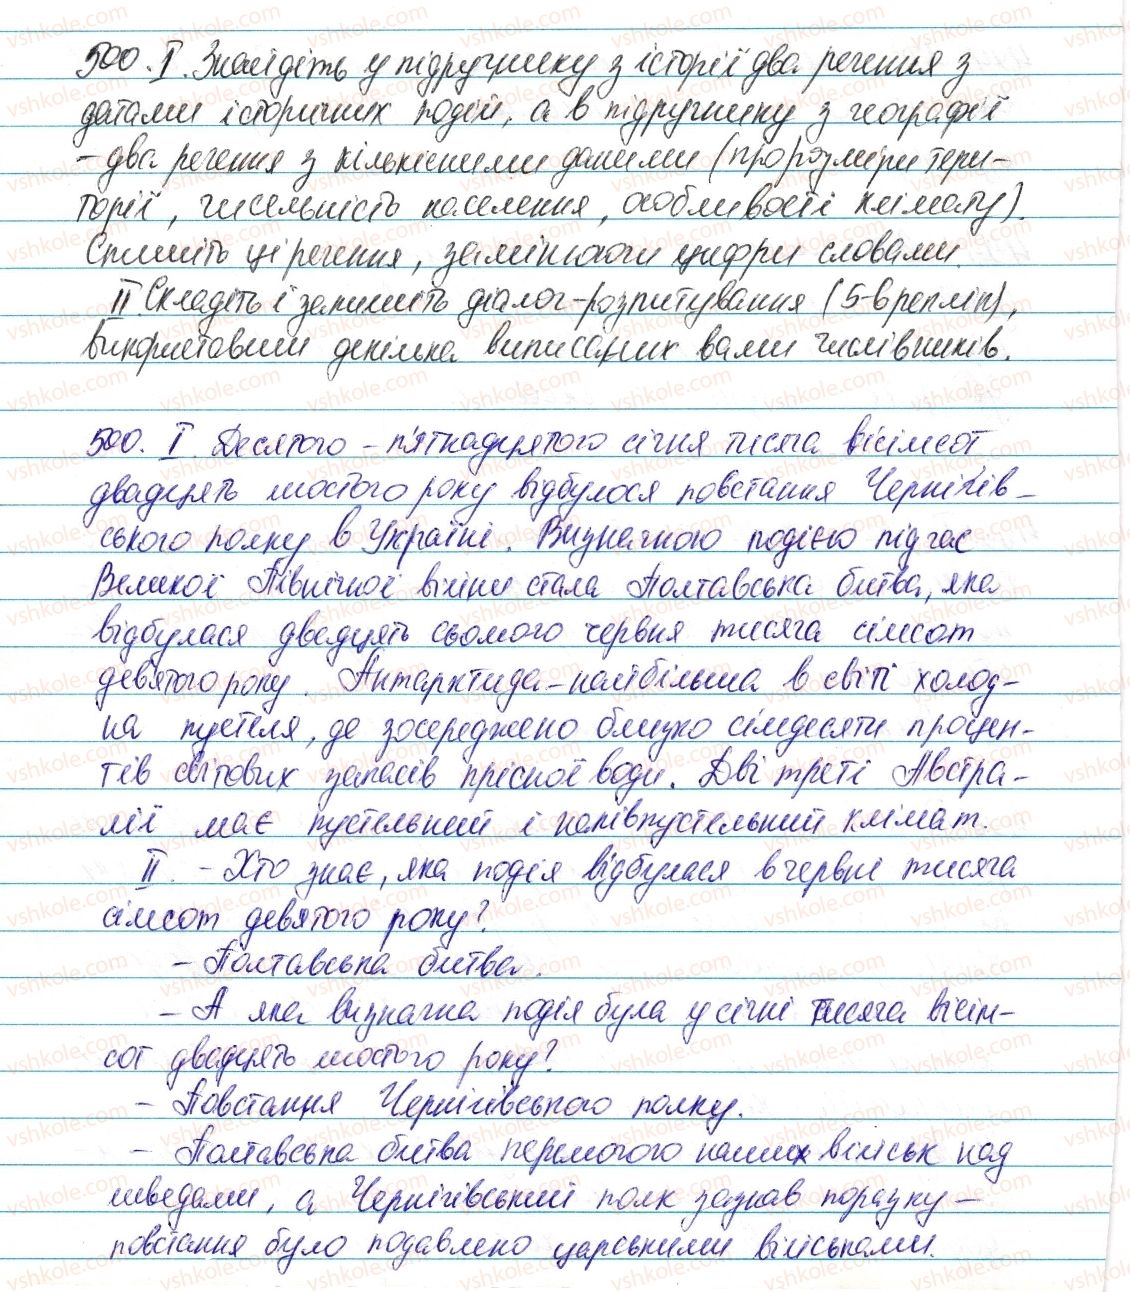 500. I. Знайдіть у підручнику з історії два речення з
датами історичних подій, а в підручнику з географії
– два речення з кількісними даними (про розміри тери-
торії, чисельність населення, особливості клімату).
Спишіть ці речення, замінюючи цифри словами.
II Складіть і запишіть діалог-розпитування (5-6 реплік),
використавши декілька виписаних вами числівників.
500. I. Десятого – п'ятнадцятого січня тисяча вісімсот
двадцять шостого року відбулося повстання Чернігів-
ського полку в Україні. Визначною подією під час
Великої Північної війни стала Полтавська битва, яка
відбулася двадцять сьомого червня тисяча сімсот
девятого року. Антарктида – найбільша в світі холод-
на пустеля, де зосереджено близко сімдесяти процен-
тів світових запасів прісної води. Дві треті Австра-
лії має пустельний і напівпустельний клімат.
II. – Хто знає, яка подія відбулася в червні тисяча
сімсот девятого року?
– Полтавська битва.
– А яка визначна подія була у січні тисяча вісім-
сот двадцять шостого року?
– Повстання Чернігівського полку.
– Полтавська битва перемогого наших військ над
шведами, а Чернігівський полк зазнав поразку –
повстання було подавлено царськими військами.